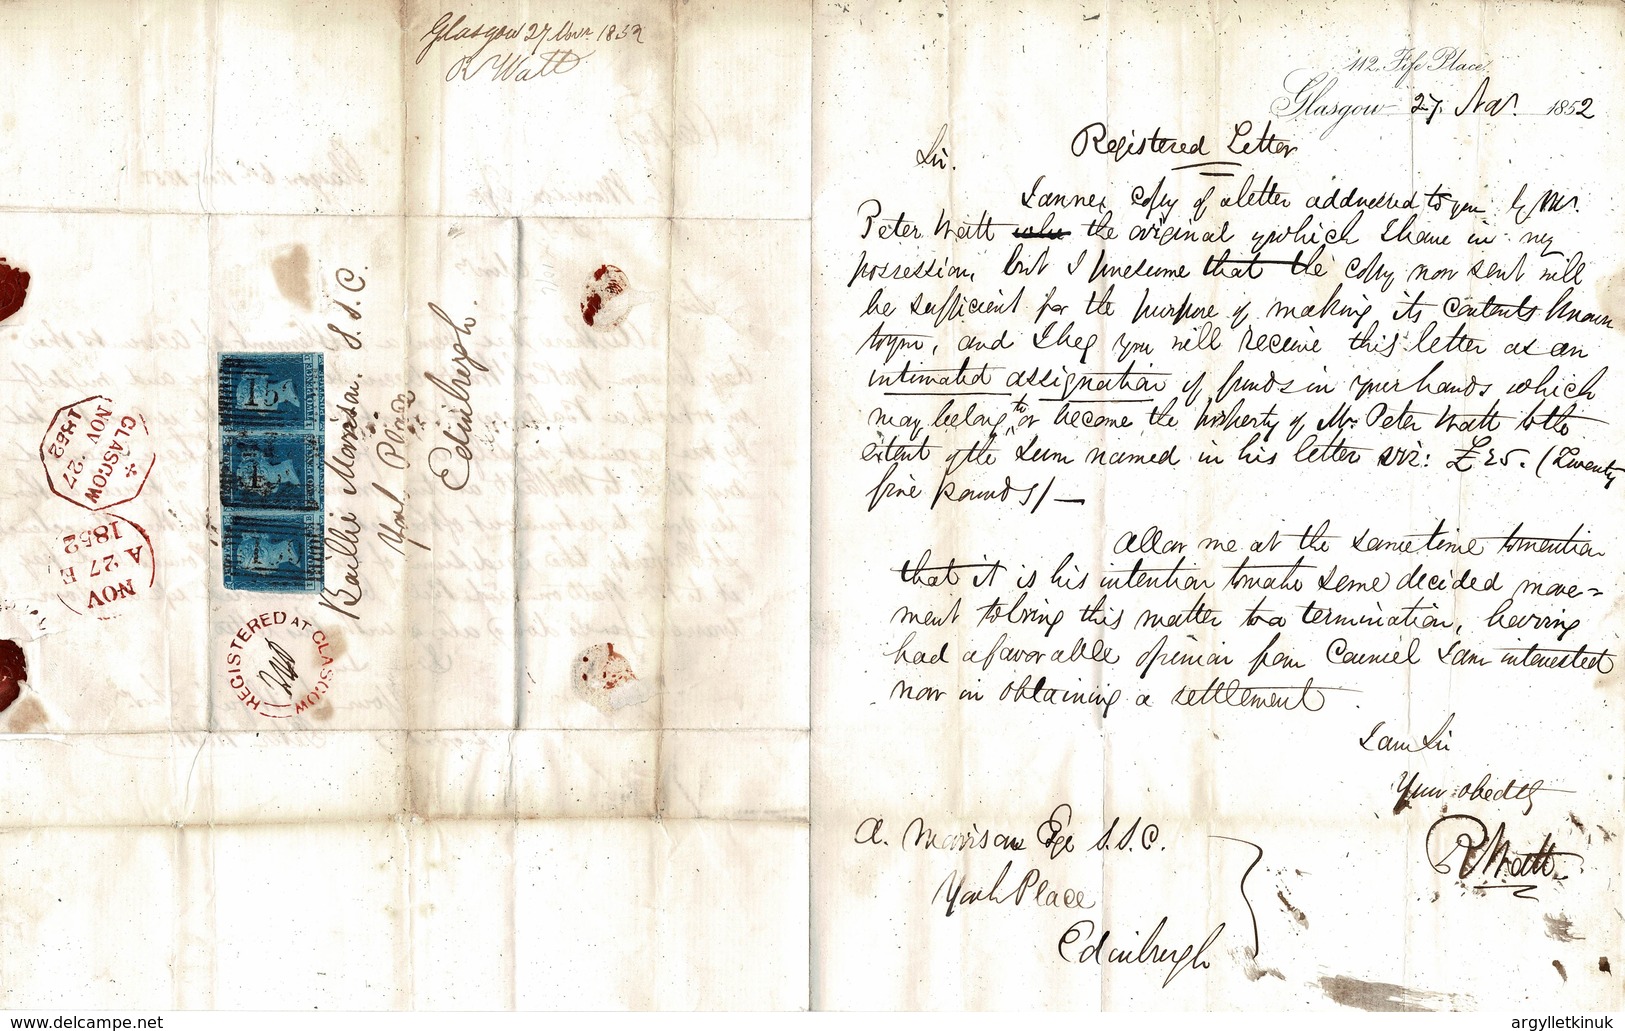 Glasgow 27 Novr 1852
R Watt
Baillie Morrison. S.S.C.
York Place
Edinburgh.
GLASGOW
NOV 27
1852
NOV
A 27 E
1852
TWO PENCE
15
1
1
REGISTERED AT GLASGOW
112, Fife Place
Glasgow 27 Novr. 1852
Registered Letter
Sir.
I annex copy of a letter addressed to you by Mr.
Peter Watt the original of which I have in my
possession, but I presume that the copy now sent will
be sufficient for the purpose of making its contents known
to you, and I beg you will receive this letter as an
intimated assignation of funds in your hands which
may belong to or become the property of Mr. Peter Watt to the
extent of the sum named in his letter viz: £25. (Twenty
five pounds)/—
Allow me at the same time to mention
that it is his intention to make some decided move=
ment to bring this matter to a termination, having
had a favorable opinion from Counsel I am interested
now in obtaining a settlement.
I am Sir
Your obedt
R Watt
A. Morrison Esqe S.S.C.
York Place
Edinburgh
www.delcampe.net
argylletkinuk